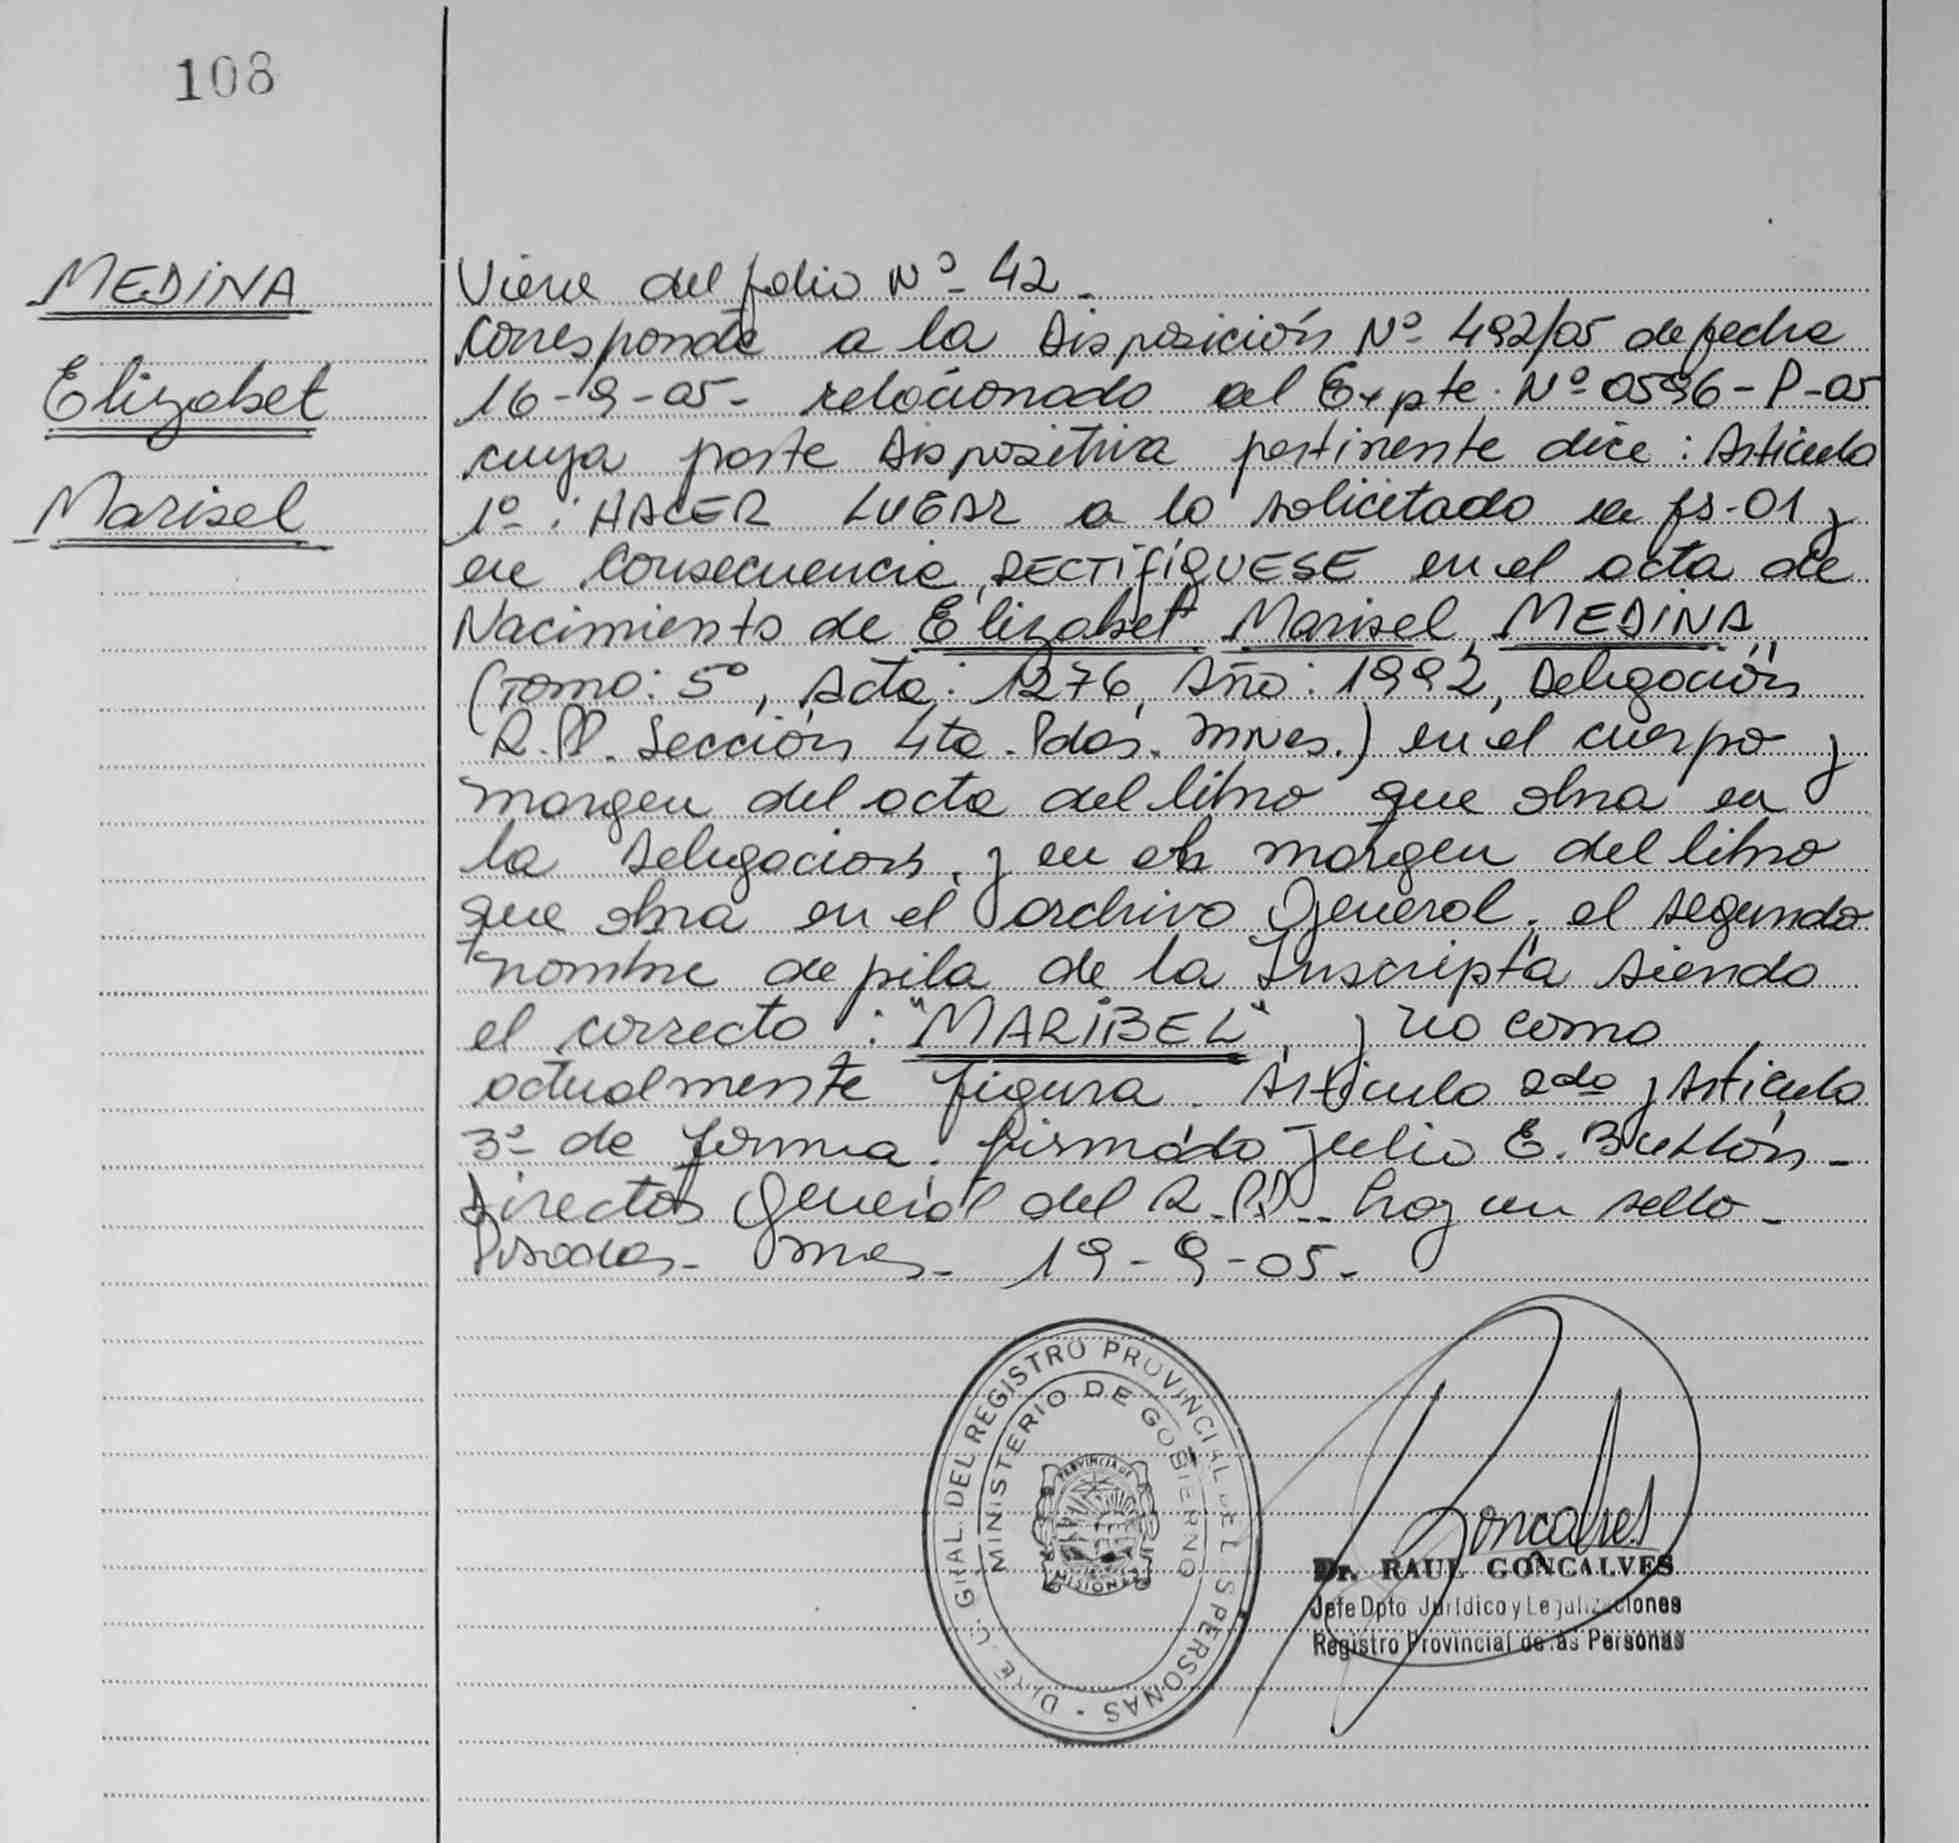 108
MEDINA
Elizabet
Marisel
Viene del folio Nº 42-
Corresponde a la Disposición Nº 492/05 de fecha
16-9-05- relacionado al Expte. Nº 0596-P-05
cuya parte Dispositiva pertinente dice: Artículo
1º: HACER LUGAR a lo solicitado en fs-01 y
en consecuencia, RECTIFIQUESE en el acta de
Nacimiento de Elizabet Marisel MEDINA,
(Tomo: 5º, Acta: 1276, Año: 1992, Delegación
R.PP. Sección 4ta. Pdas. Mnes.) en el cuerpo y
margen del acta del libro que obra en
la Delegación, y en el margen del libro
que obra en el archivo General, el segundo
nombre de pila de la Inscripta siendo
el correcto: "MARIBEL", y no como
actualmente figura. Artículo 2do y Artículo
3º de forma. firmado Julio E. Bullón-
Director General del R.PP. hay un sello-
Posadas- Mnes- 19-9-05-
GRAL. DEL REGISTRO PROVINCIAL DE L S PERSONAS -
MINISTERIO DE GOBIERNO
PROVINCIA DE
MISIONES
Goncalves
Dr. RAUL GONCALVES
Jefe Dpto Jurídico y Legalizaciones
Registro Provincial de las Personas